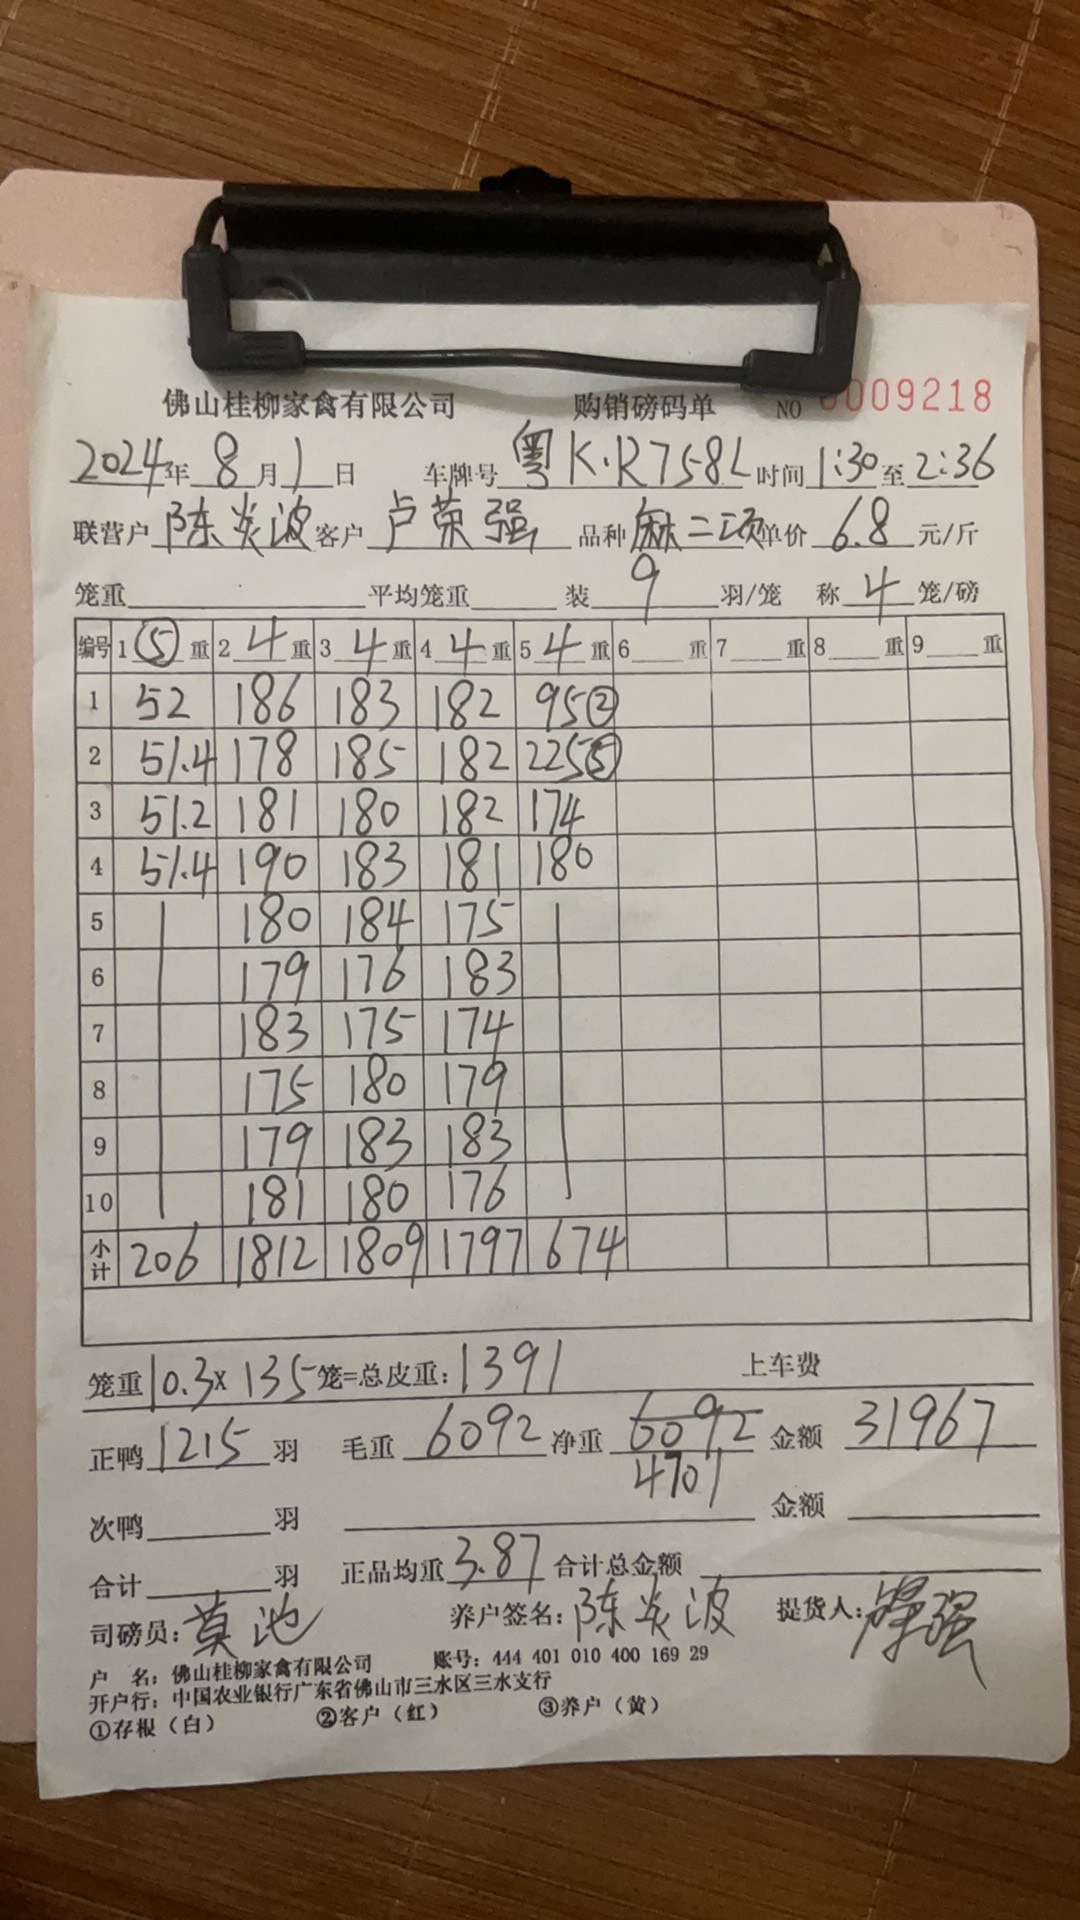 佛山桂柳家禽有限公司 购销磅码单 NO 0009218
2024年 8月 1日 车牌号 粤K·R758L 时间 1:30 至 2:36
联营户 陈炎波 客户 卢荣强 品种 麻二项 单价 6.8 元/斤
笼重 平均笼重 装 9 羽/笼 称 4 笼/磅
编号 1 ⑤ 重 2 4 重 3 4 重 4 4 重 5 4 重 6 重 7 重 8 重 9 重
1 52 186 183 182 95②
2 51.4 178 185 182 225⑤
3 51.2 181 180 182 174
4 51.4 190 183 181 180
5 180 184 175
6 179 176 183
7 183 175 174
8 175 180 179
9 179 183 183
10 181 180 176
小计 206 1812 1809 1797 674
笼重 10.3 x 135 笼=总皮重: 1391 上车费
正鸭 1215 羽 毛重 6092 净重 6092 金额 31967
4701
次鸭 羽 金额
合计 羽 正品均重 3.87 合计总金额
司磅员: 莫池 养户签名: 陈炎波 提货人:
户 名: 佛山桂柳家禽有限公司 账号: 444 401 010 400 169 29
开户行: 中国农业银行广东省佛山市三水区三水支行
①存根（白） ②客户（红） ③养户（黄）